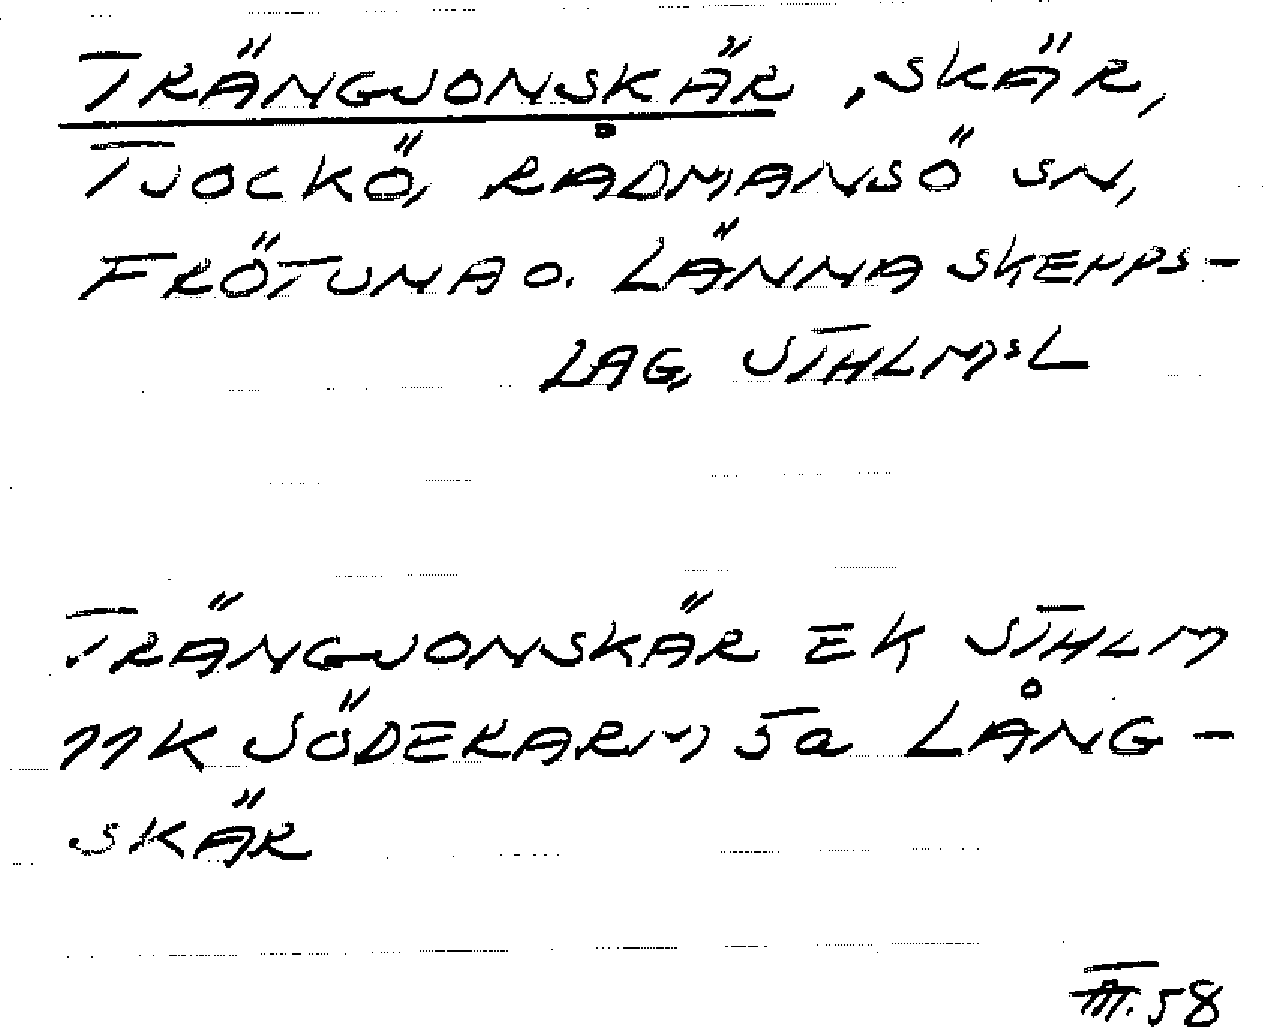 TRÄNGJONSKÄR, SKÄR,
TJOCKÖ, RÅDMANSÖ SN,
FRÖTUNA O. LÄNNA SKEPPS-
LAG, STHLMsL
TRÄNGJONSKÄR EK STHLM
11K SÖDERARM 5a LÅNG-
SKÄR
III.58